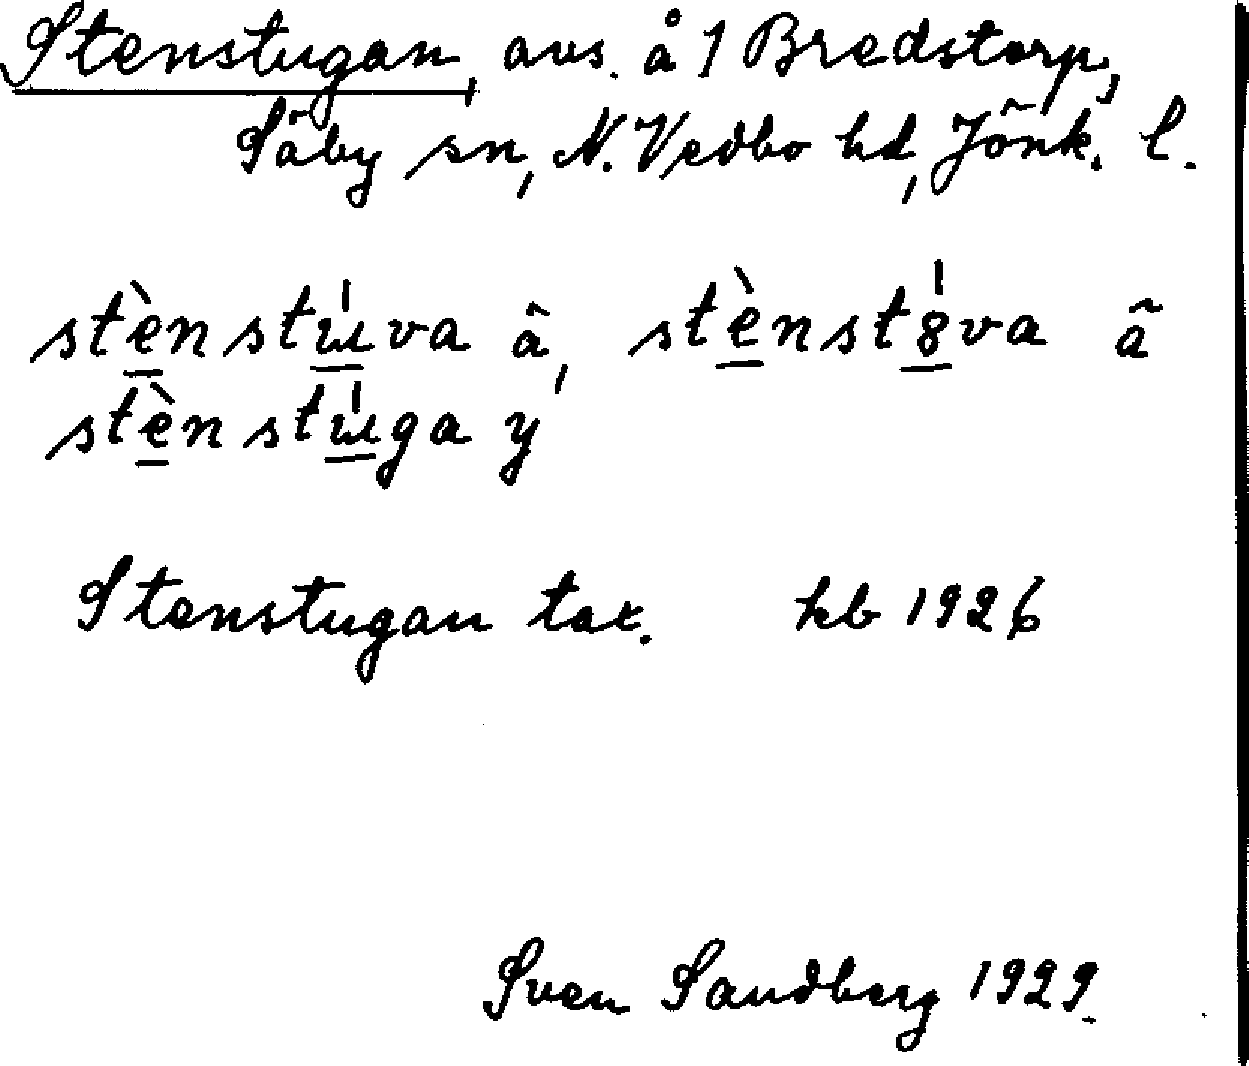 Stenstugan, avs. å 1 Bredstorp,
Säby sn, N. Vedbo hd, Jönk. l.
stènstɯ́va ä, stènst8́va ä
stènstɯ́ga y
Stenstugan tax. kb 1926
Sven Sandberg 1929.